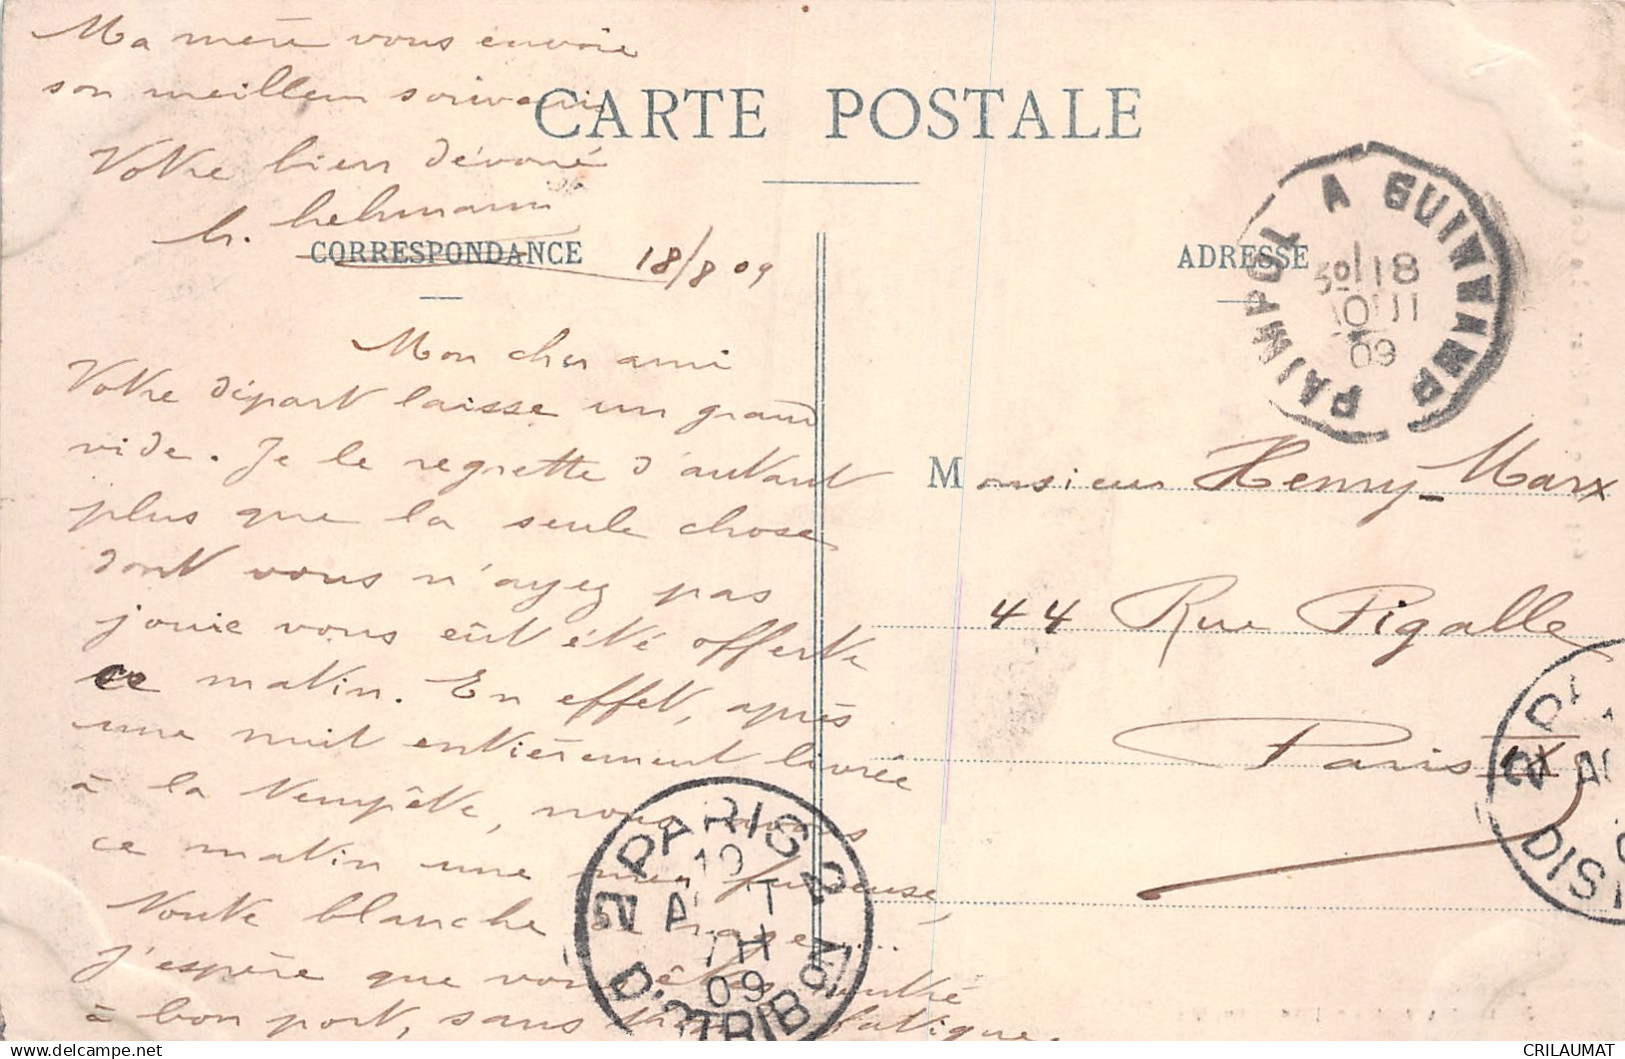 Ma mère vous envoie
son meilleur souvenir
CARTE POSTALE
Votre bien dévoué
18/8 09
CORRESPONDANCE
ADRESSE
PAIMPOL A GUINGAMP
18
AOUT
09
Mon cher ami
Votre départ laisse un grand
vide. Je le regrette d'autant
plus que la seule chose
dont vous n'ayez pas
jouie vous eût été offerte
ce matin. En effet, après
une nuit entièrement livrée
à la tempête, nous avons
ce matin une mer furieuse,
toute blanche de rage....
j'espère que vous êtes rentré
à bon port, sans trop de fatigue
Monsieur Henry-Marx
44 Rue Pigalle
Paris IX
2 PARIS 2
19
09
DISTRIBON
2 PA
DIS
CRILAUMAT